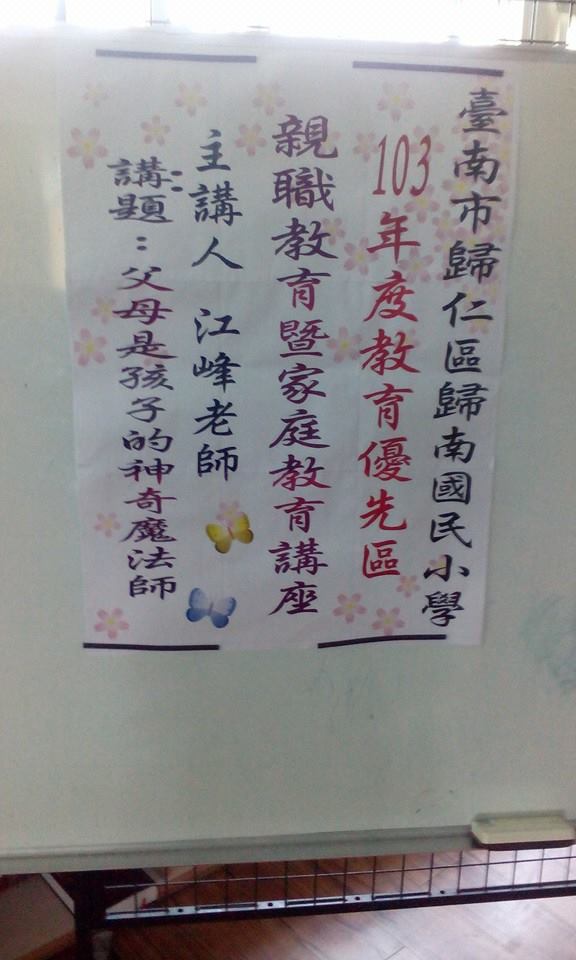 臺南市歸仁區歸南國民小學
103年度教育優先區
親職教育暨家庭教育講座
主講人 江峰老師
講題：父母是孩子的神奇魔法師